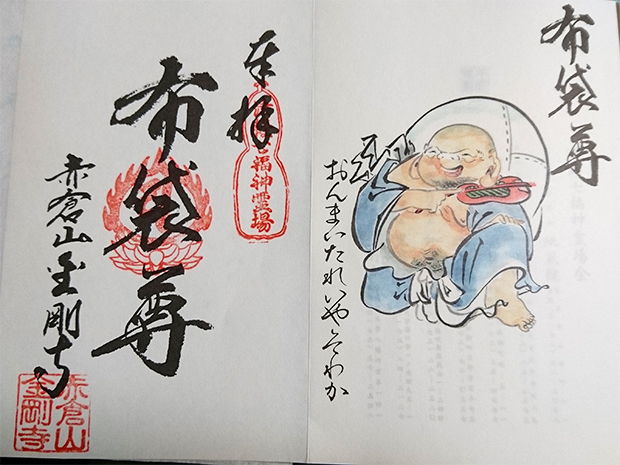 布袋尊
おんまいたれいやそわか
奉拝
福神霊場
布袋尊
赤倉山金剛寺
赤倉山
金剛寺